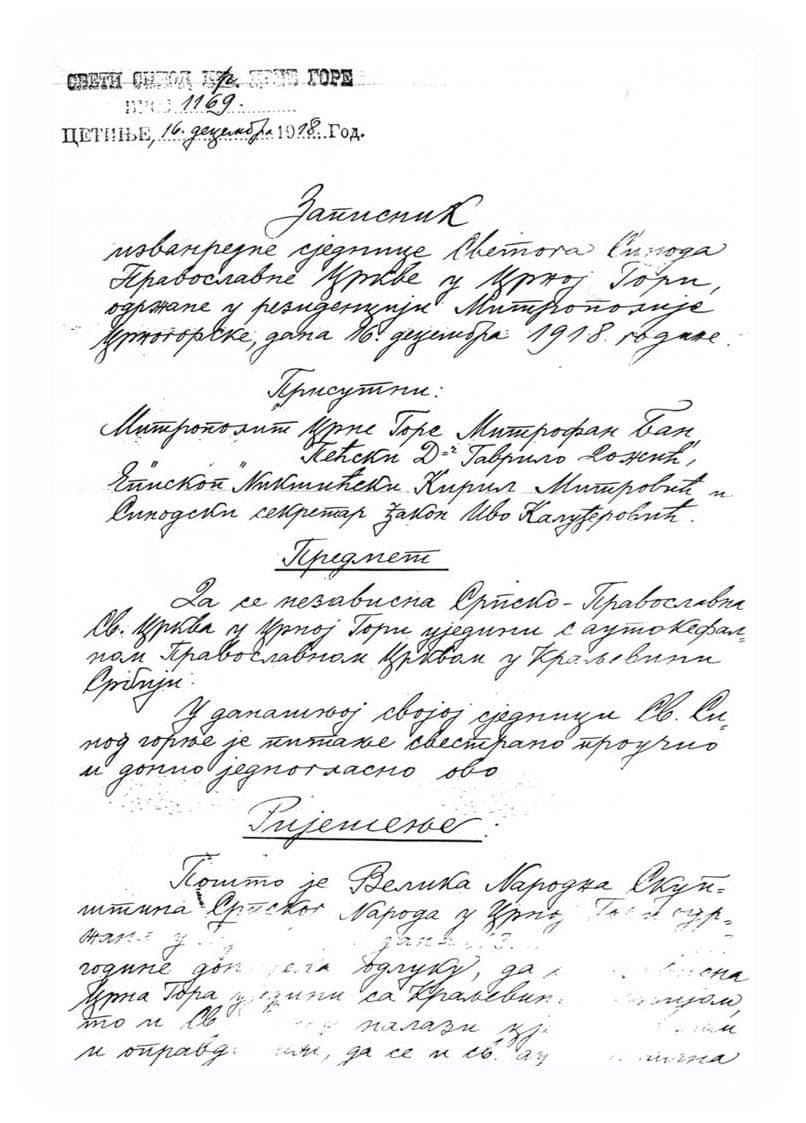 СВЕТИ СИНОД Кр. ЦРНЕ ГОРЕ
БРОЈ 1169.
ЦЕТИЊЕ, 16. децембра 1918. Год.
Записник
изванредне сједнице Светога Синода
Православне Цркве у Црној Гори,
одржане у резиденцији Митрополије
Црногорске, дана 16. децембра 1918. године.
Присутни:
Митрополит Црне Горе Митрофан Бан,
Пећски Д-р Гаврило Дожић,
Епископ Никшићски Кирил Митровић и
Синодски секретар ђакон Иво Калуђеровић.
Предмет
Да се независна Српско-Православна
Св. Црква у Црној Гори уједини с аутокефал=
ном Православном Црквом у Краљевини
Србији.
У данашњој својој сједници Св. Си=
нод горње је питање свестрано проучио
и донио једногласно ово
Ријешење:
Пошто је Велика Народна Скуп=
штина Српског Народа у Црној Гори одр=
жана у
године одлуку, да
Црна Гора уједини са Краљевином
то и Св. налази
и да се и св.